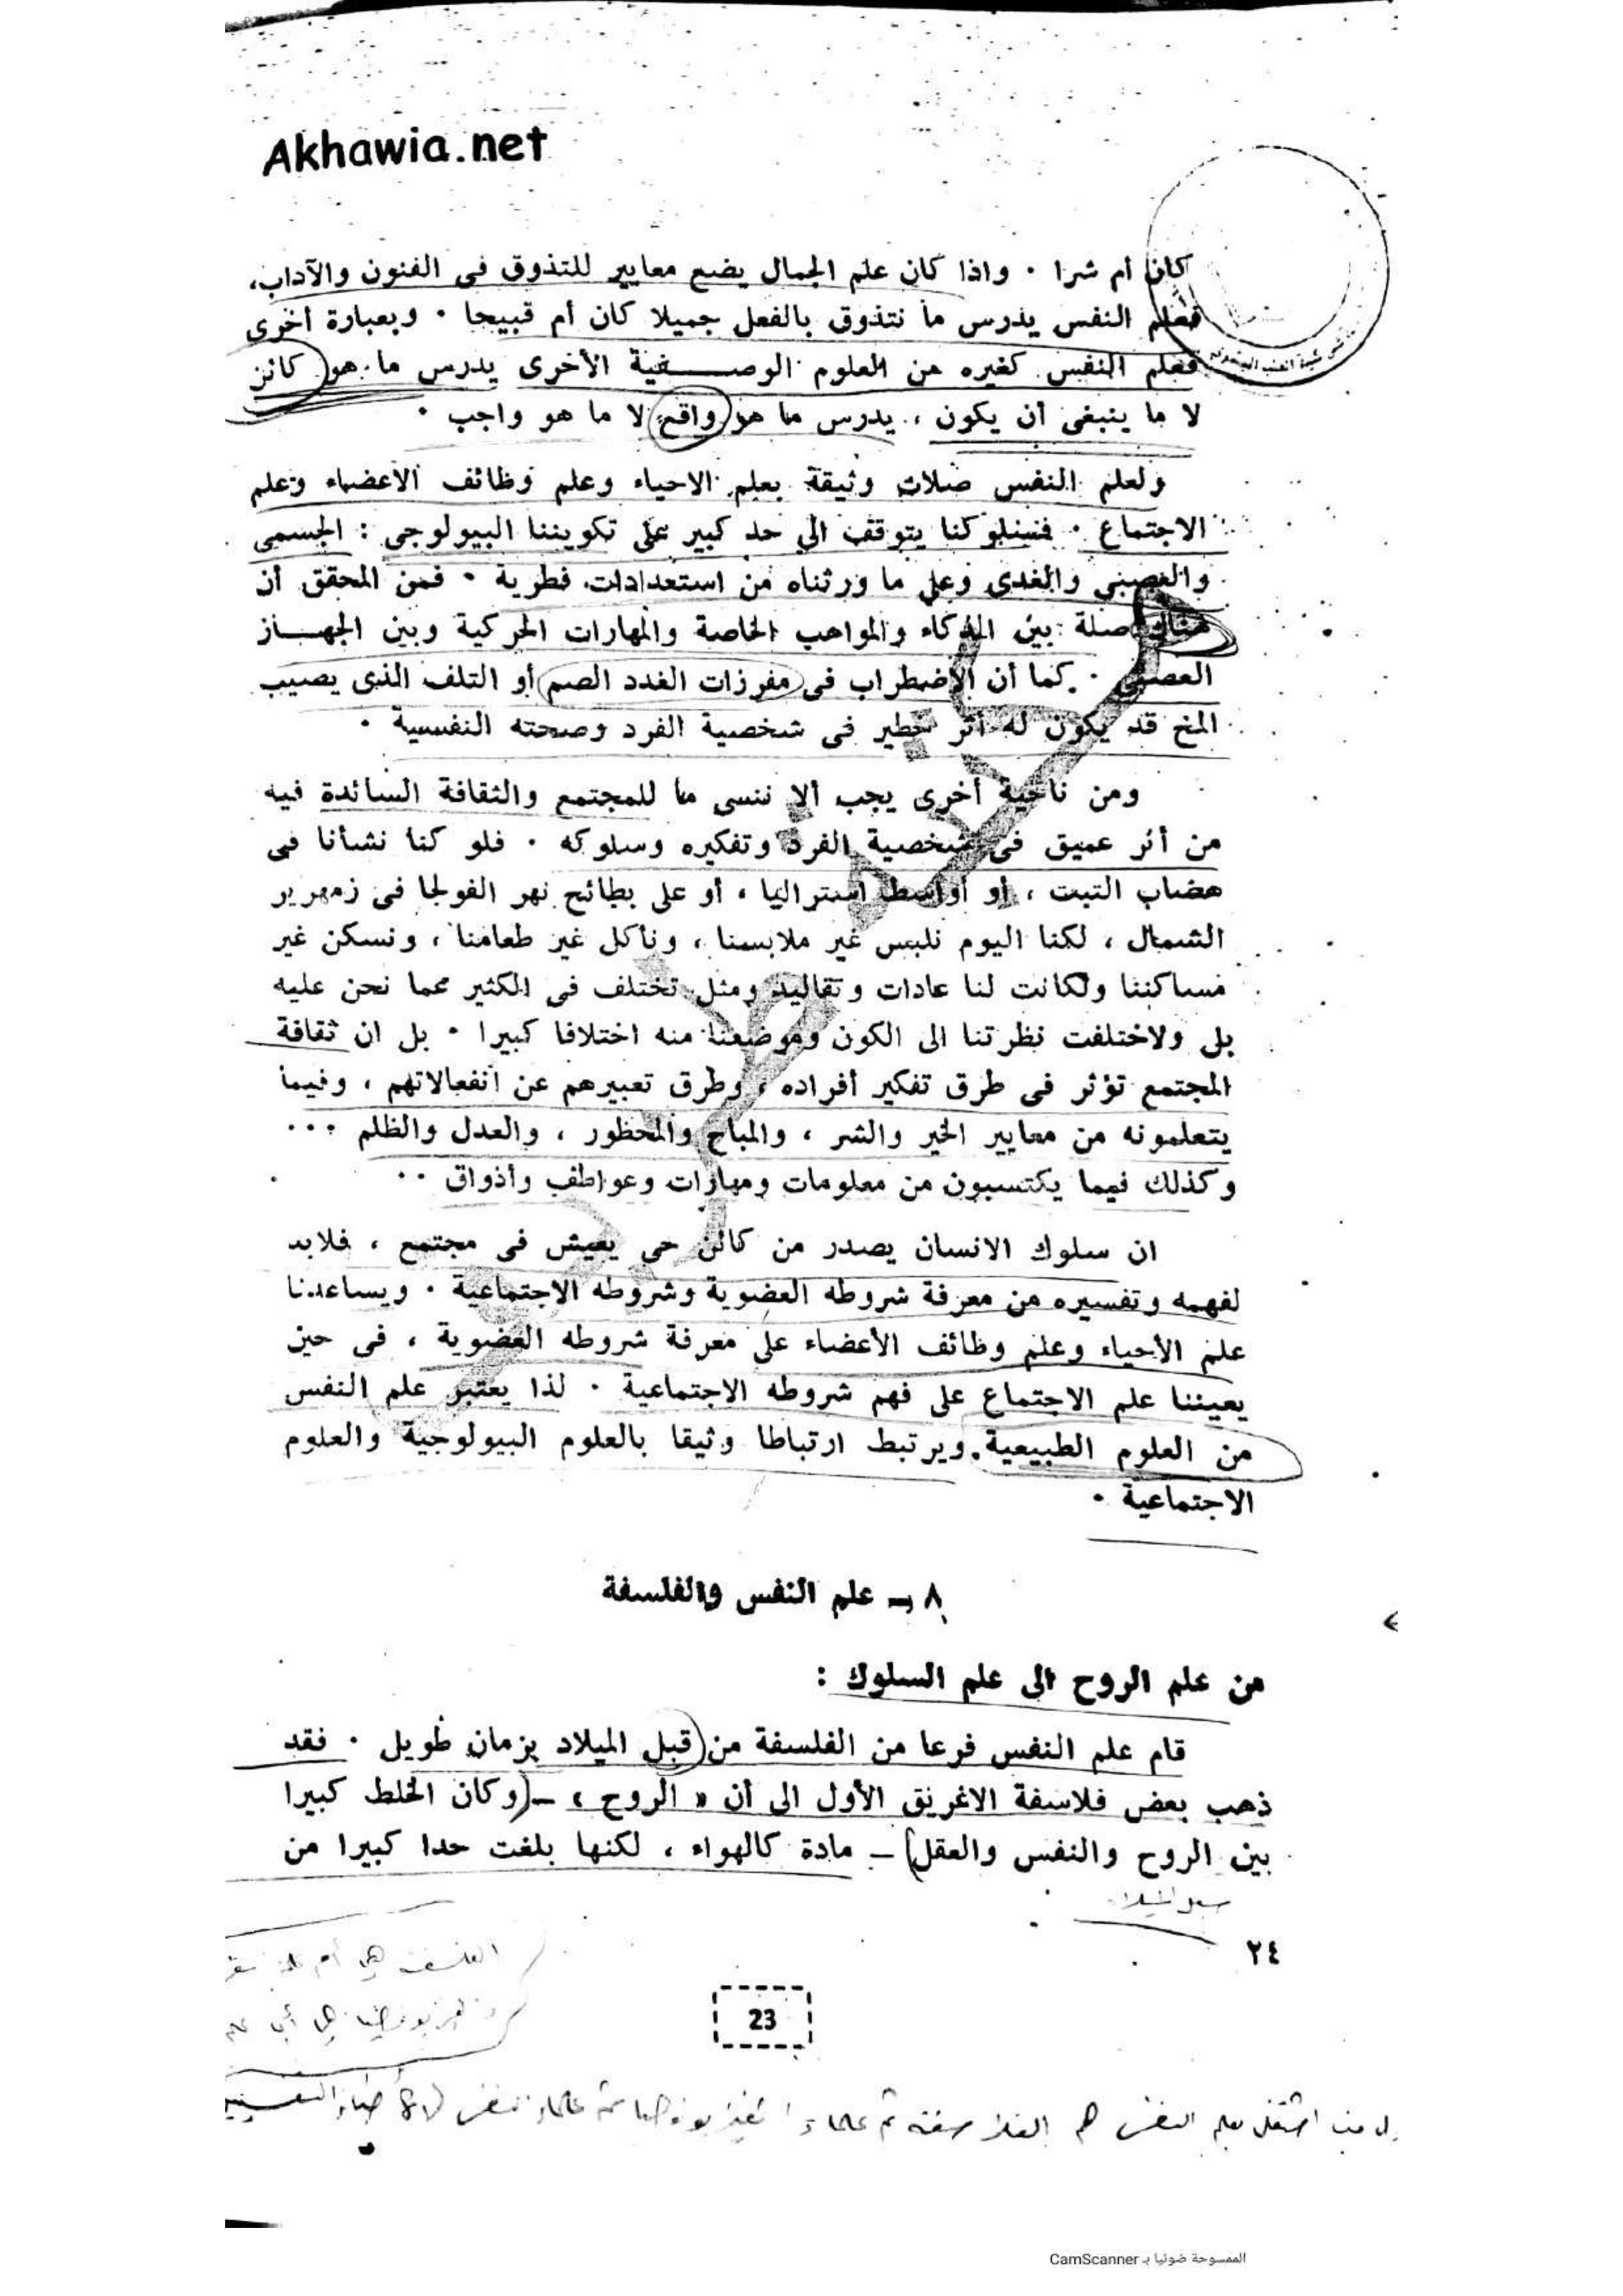 Akhawia.net
كان أم شرا . واذا كان علم الجمال يضع معايير للتذوق فى الفنون والآداب،
فعلم النفس يدرس ما نتذوق بالفعل جميلا كان أم قبيحا . وبعبارة أخرى
فعلم النفس كغيره من العلوم الوصفية الأخرى يدرس ما هو كائن
لا ما ينبغى أن يكون ، يدرس ما هو واقع لا ما هو واجب .
ولعلم النفس صلات وثيقة بعلم الاحياء وعلم وظائف الأعضاء وعلم
الاجتماع . فسلوكنا يتوقف الى حد كبير على تكويننا البيولوجى : الجسمى
والعصبى والغدى وعلى ما ورثناه من استعدادات فطرية . فمن المحقق أن
هناك صلة بين الذكاء والمواهب الخاصة والمهارات الحركية وبين الجهاز
العصبى . كما أن الاضطراب فى مفرزات الغدد الصم أو التلف الذى يصيب
المخ قد يكون له أثر خطير فى شخصية الفرد وصحته النفسية .
ومن ناحية أخرى يجب ألا ننسى ما للمجتمع والثقافة السائدة فيه
من أثر عميق فى شخصية الفرد وتفكيره وسلوكه . فلو كنا نشأنا فى
هضاب التبت ، أو أواسط استراليا ، أو على بطائح نهر الفولجا فى زمهرير
الشمال ، لكنا اليوم نلبس غير ملابسنا ، ونأكل غير طعامنا ، ونسكن غير
مساكننا ولكانت لنا عادات وتقاليد ومثل تختلف فى الكثير مما نحن عليه
بل ولاختلفت نظرتنا الى الكون وموضعنا منه اختلافا كبيرا . بل ان ثقافة
المجتمع تؤثر فى طرق تفكير أفراده ، وطرق تعبيرهم عن انفعالاتهم ، وفيما
يتعلمونه من معايير الخير والشر ، والمباح والمحظور ، والعدل والظلم ...
وكذلك فيما يكتسبون من معلومات ومهارات وعواطف وأذواق ..
ان سلوك الانسان يصدر من كائن حى يعيش فى مجتمع ، فلابد
لفهمه وتفسيره من معرفة شروطه العضوية وشروطه الاجتماعية . ويساعدنا
علم الأحياء وعلم وظائف الأعضاء على معرفة شروطه العضوية ، فى حين
يعيننا علم الاجتماع على فهم شروطه الاجتماعية . لذا يعتبر علم النفس
من العلوم الطبيعية ويرتبط ارتباطا وثيقا بالعلوم البيولوجية والعلوم
الاجتماعية .
٨ – علم النفس والفلسفة
من علم الروح الى علم السلوك :
قام علم النفس فرعا من الفلسفة من قبل الميلاد بزمان طويل . فقد
ذهب بعض فلاسفة الاغريق الأول الى أن « الروح » – (وكان الخلط كبيرا
بين الروح والنفس والعقل) – مادة كالهواء ، لكنها بلغت حدا كبيرا من
٢٤
الفلسفة هي أم
23
اشتغل بعلم النفس هم الفلاسفة ثم علماء
الممسوحة ضوئيا بـ CamScanner